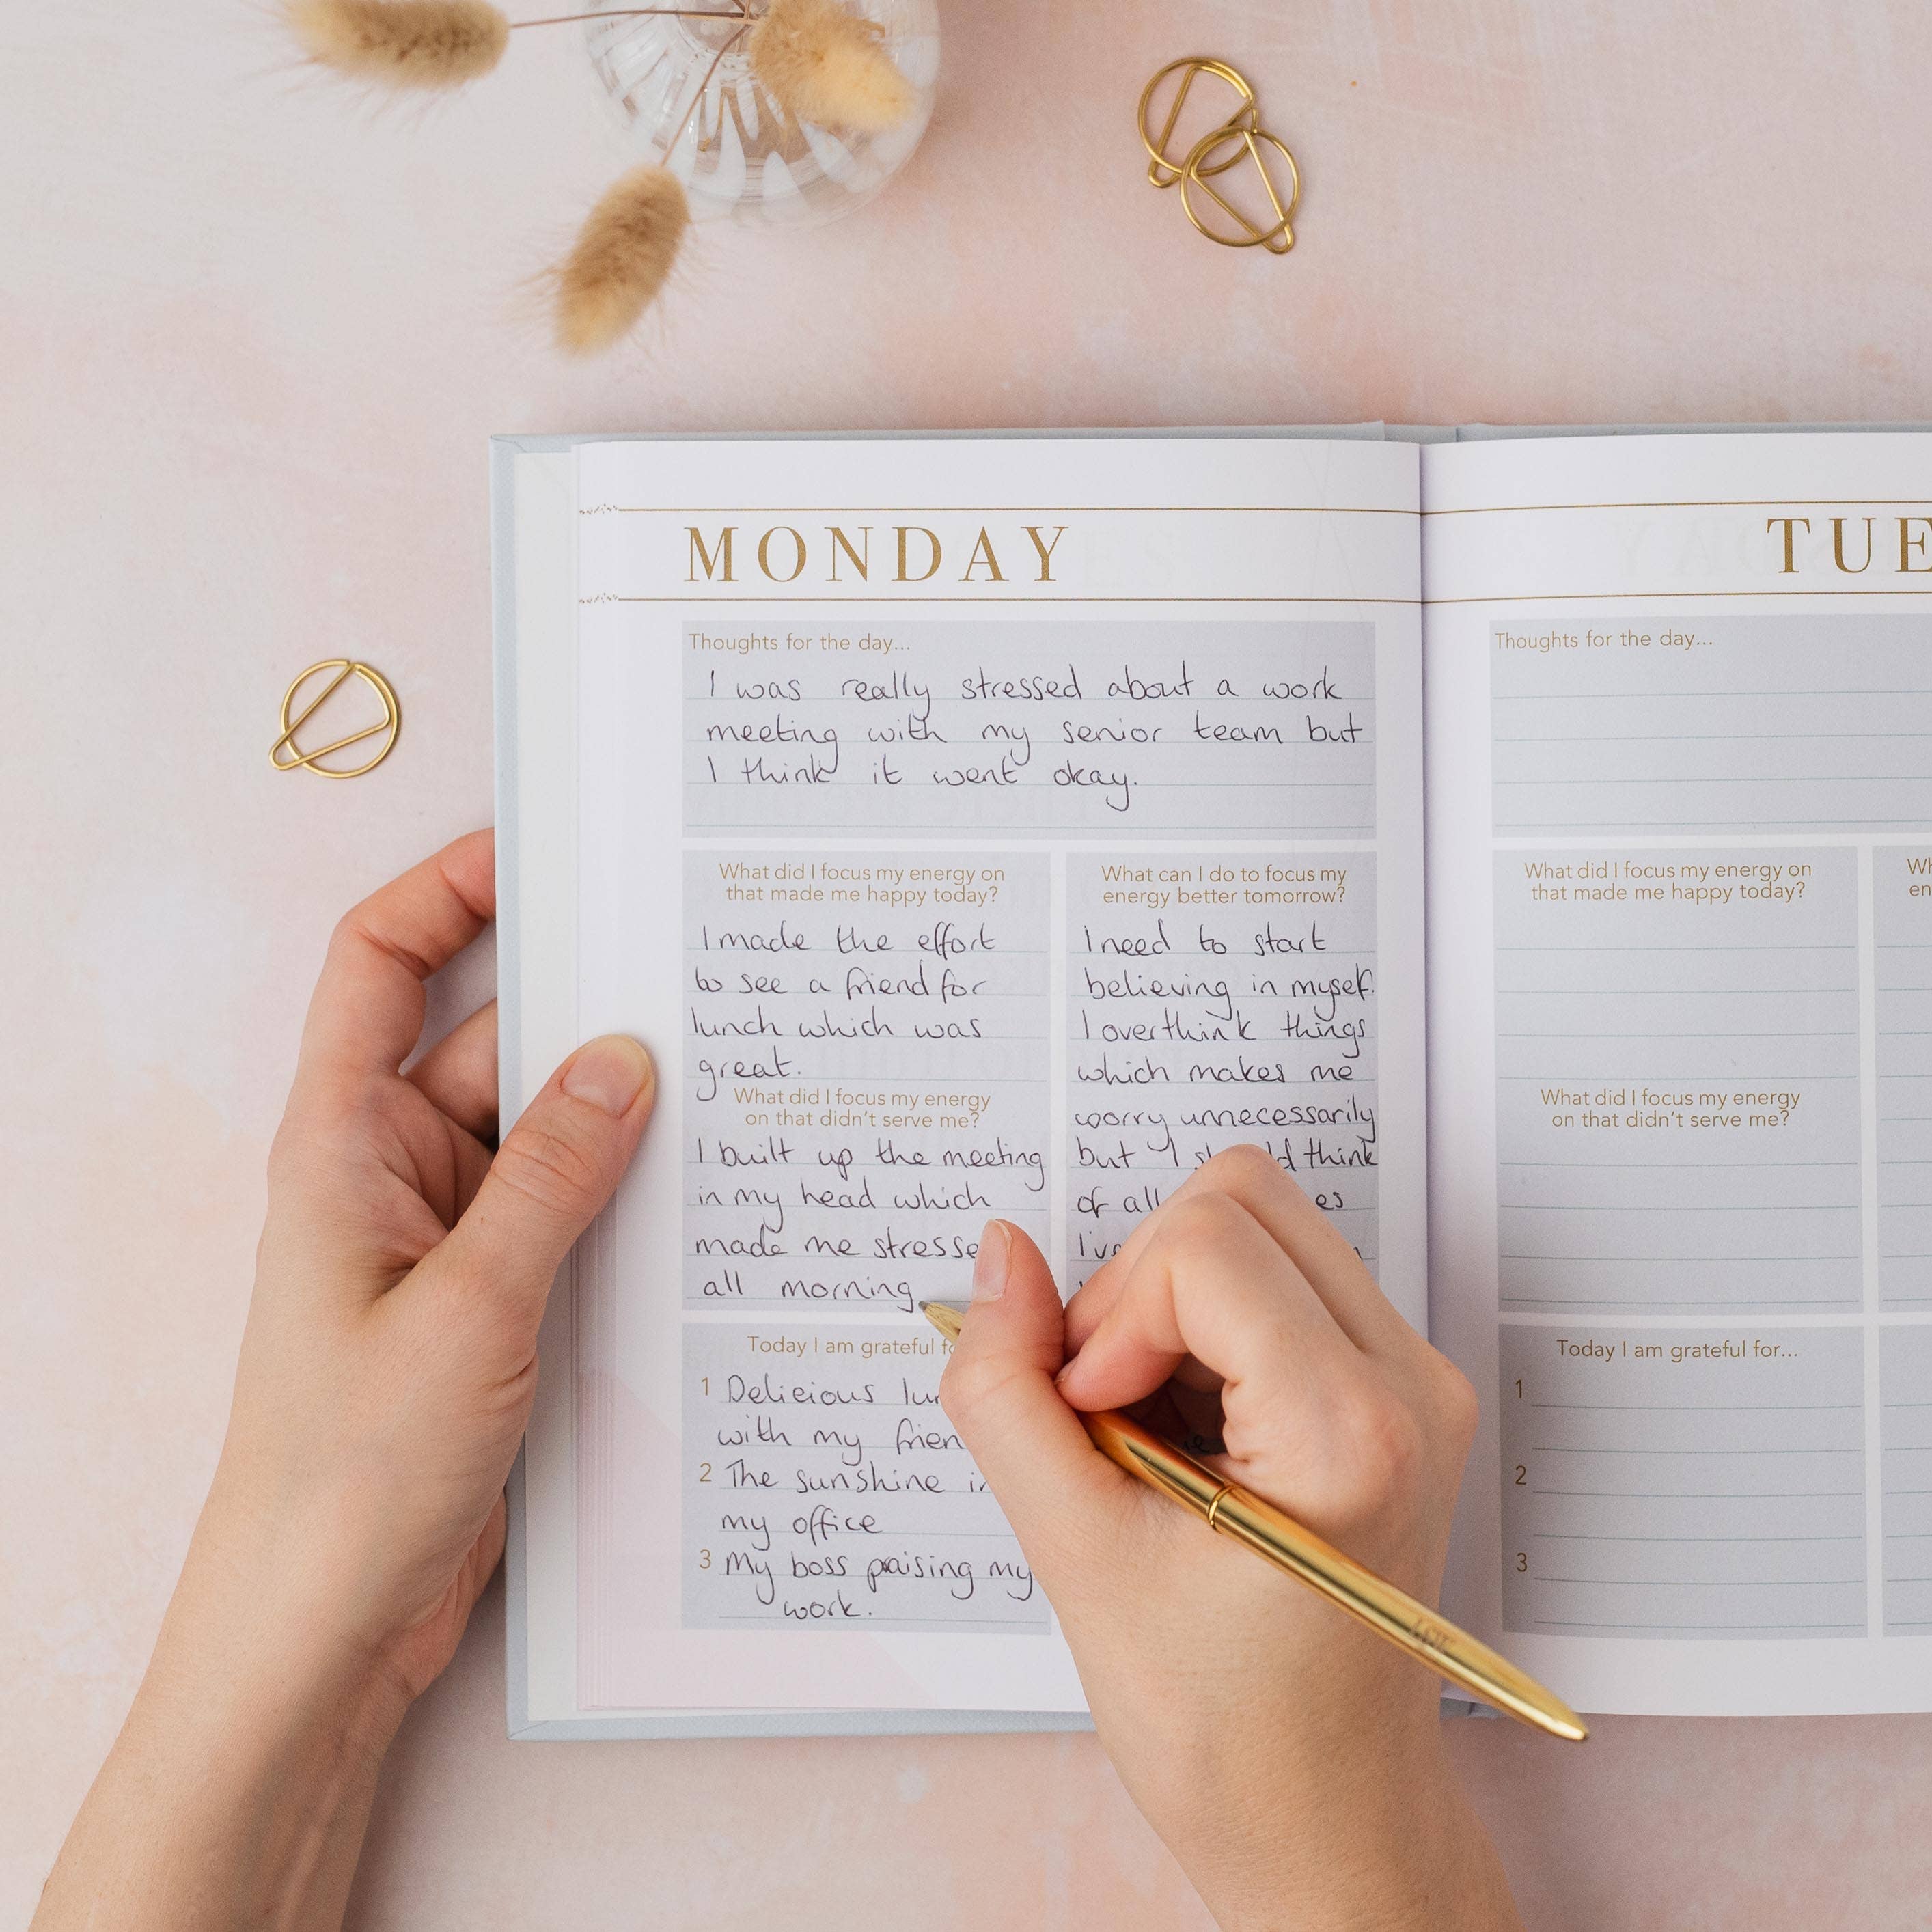 MONDAY
Thoughts for the day...
I was really stressed about a work
meeting with my senior team but
I think it went okay.
What did I focus my energy on
that made me happy today?
I made the effort
to see a friend for
lunch which was
great.
What did I focus my energy
on that didn't serve me?
I built up the meeting
in my head which
made me
all morning
What can I do to focus my
energy better tomorrow?
I need to start
believing in myself.
I overthink things
which makes me
worry unnecessarily
but I think
of all
Today I am grateful
1 Delicious
with my
2 The sunshine in
my office
3 My boss praising my
work.
TUE
Thoughts for the day...
What did I focus my energy on
that made me happy today?
What did I focus my energy
on that didn't serve me?
Today I am grateful for...
1
2
3